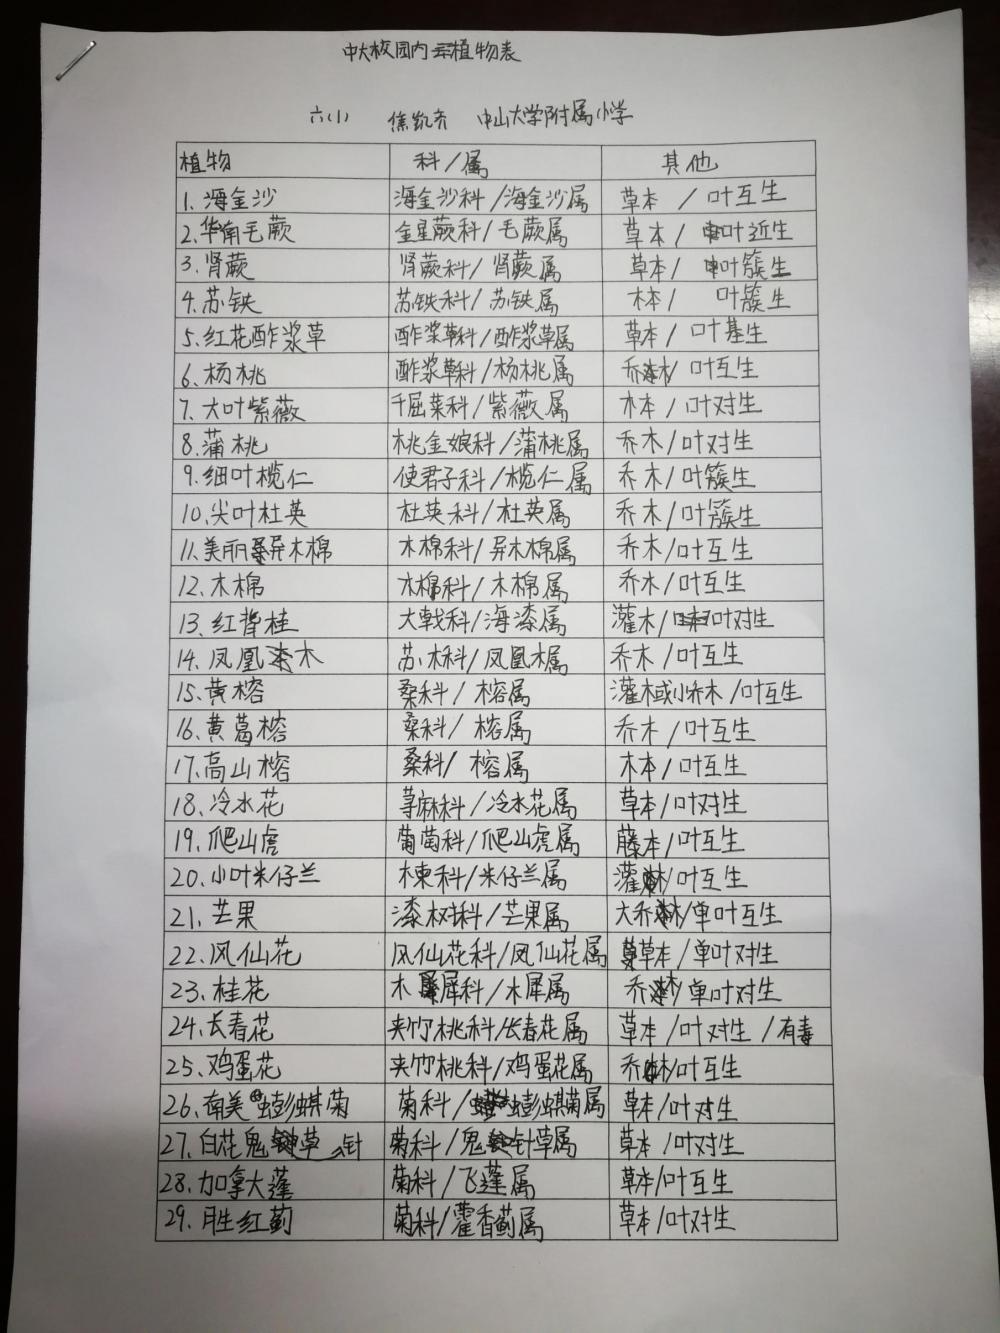 中大校园内植物表
六(1) 焦凯 中山大学附属小学
植物 科/属 其他
1.海金沙 海金沙科/海金沙属 草本 / 叶互生
2.华南毛蕨 金星蕨科/毛蕨属 草本/ 叶近生
3.肾蕨 肾蕨科/肾蕨属 草本/ 叶簇生
4.苏铁 苏铁科/苏铁属 木本/ 叶簇生
5.红花酢浆草 酢浆草科/酢浆草属 草本/ 叶基生
6.杨桃 酢浆草科/杨桃属 乔木/ 叶互生
7.大叶紫薇 千屈菜科/紫薇属 木本/叶对生
8.蒲桃 桃金娘科/蒲桃属 乔木/叶对生
9.细叶榄仁 使君子科/榄仁属 乔木/叶簇生
10.尖叶杜英 杜英科/杜英属 乔木/叶簇生
11.美丽异木棉 木棉科/异木棉属 乔木/叶互生
12.木棉 木棉科/木棉属 乔木/叶互生
13.红背桂 大戟科/海漆属 灌木/叶对生
14.凤凰木 苏木科/凤凰木属 乔木/叶互生
15.黄榕 桑科/榕属 灌木或小乔木/叶互生
16.黄葛榕 桑科/榕属 乔木/叶互生
17.高山榕 桑科/榕属 木本/叶互生
18.冷水花 荨麻科/冷水花属 草本/叶对生
19.爬山虎 葡萄科/爬山虎属 藤本/叶互生
20.小叶米仔兰 楝科/米仔兰属 灌木/叶互生
21.芒果 漆树科/芒果属 大乔木/单叶互生
22.凤仙花 凤仙花科/凤仙花属 草本/单叶对生
23.桂花 木犀科/木犀属 乔木/单叶对生
24.长春花 夹竹桃科/长春花属 草本/叶对生/有毒
25.鸡蛋花 夹竹桃科/鸡蛋花属 乔木/叶互生
26.南美蟛蜞菊 菊科/蟛蜞菊属 草本/叶对生
27.白花鬼针草 菊科/鬼针草属 草本/叶对生
28.加拿大蓬 菊科/飞蓬属 草本/叶互生
29.胜红蓟 菊科/藿香蓟属 草本/叶对生